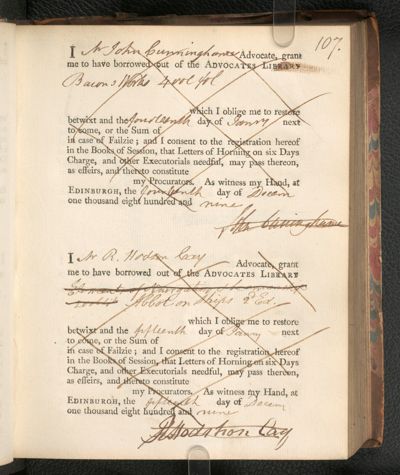 107.
I Mr John Cunninghame Advocate, grant
me to have borrowed out of the ADVOCATES LIBRARY
Bacons Works 4 vol fol
which I oblige me to restore
betwixt and the fourteenth day of Janry next
to come, or the Sum of
in case of Failzie; and I consent to the registration hereof
in the Books of Session, that Letters of Horning on six Days
Charge, and other Executorials needful, may pass thereon,
as effeirs, and thereto constitute
my Procurators. As witness my Hand, at
EDINBURGH, the fourteenth day of Decem
one thousand eight hundred and nine
Jn Cuninghame
I Mr R. Hodson Cay Advocate, grant
me to have borrowed out of the ADVOCATES LIBRARY
Abbot on Ships 2d Ed.
which I oblige me to restore
betwixt and the fifteenth day of Janry next
to come, or the Sum of
in case of Failzie; and I consent to the registration, hereof
in the Books of Session, that Letters of Horning on six Days
Charge, and other Executorials needful, may pass thereon,
as effeirs, and thereto constitute
my Procurators. As witness my Hand, at
EDINBURGH, the fifteenth day of Decem
one thousand eight hundred and nine
R Hodshon Cay